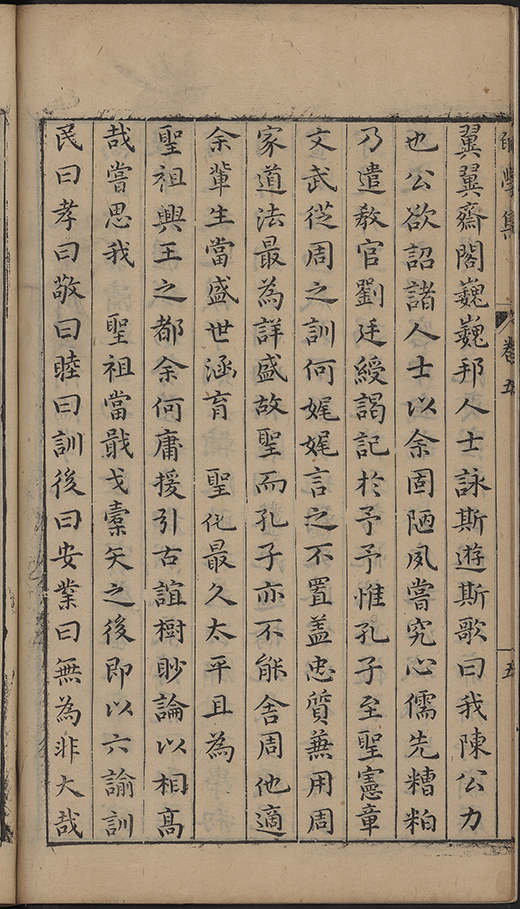 學集 卷五 五
翼翼齋閣巍巍邦人士詠斯遊斯歌曰我陳公力
也公欲詔諸人士以余固陋夙嘗究心儒先糟粕
乃遣教官劉廷綬謁記於予予惟孔子至聖憲章
文武從周之訓何娓娓言之不置蓋忠質兼用周
家道法最為詳盛故聖而孔子亦不能舍周他適
余輩生當盛世涵育 聖化最久太平且為
聖祖興王之都余何庸援引古誼樹眇論以相高
哉嘗思我 聖祖當戢戈櫜矢之後即以六諭訓
民曰孝曰敬曰睦曰訓後曰安業曰無為非大哉